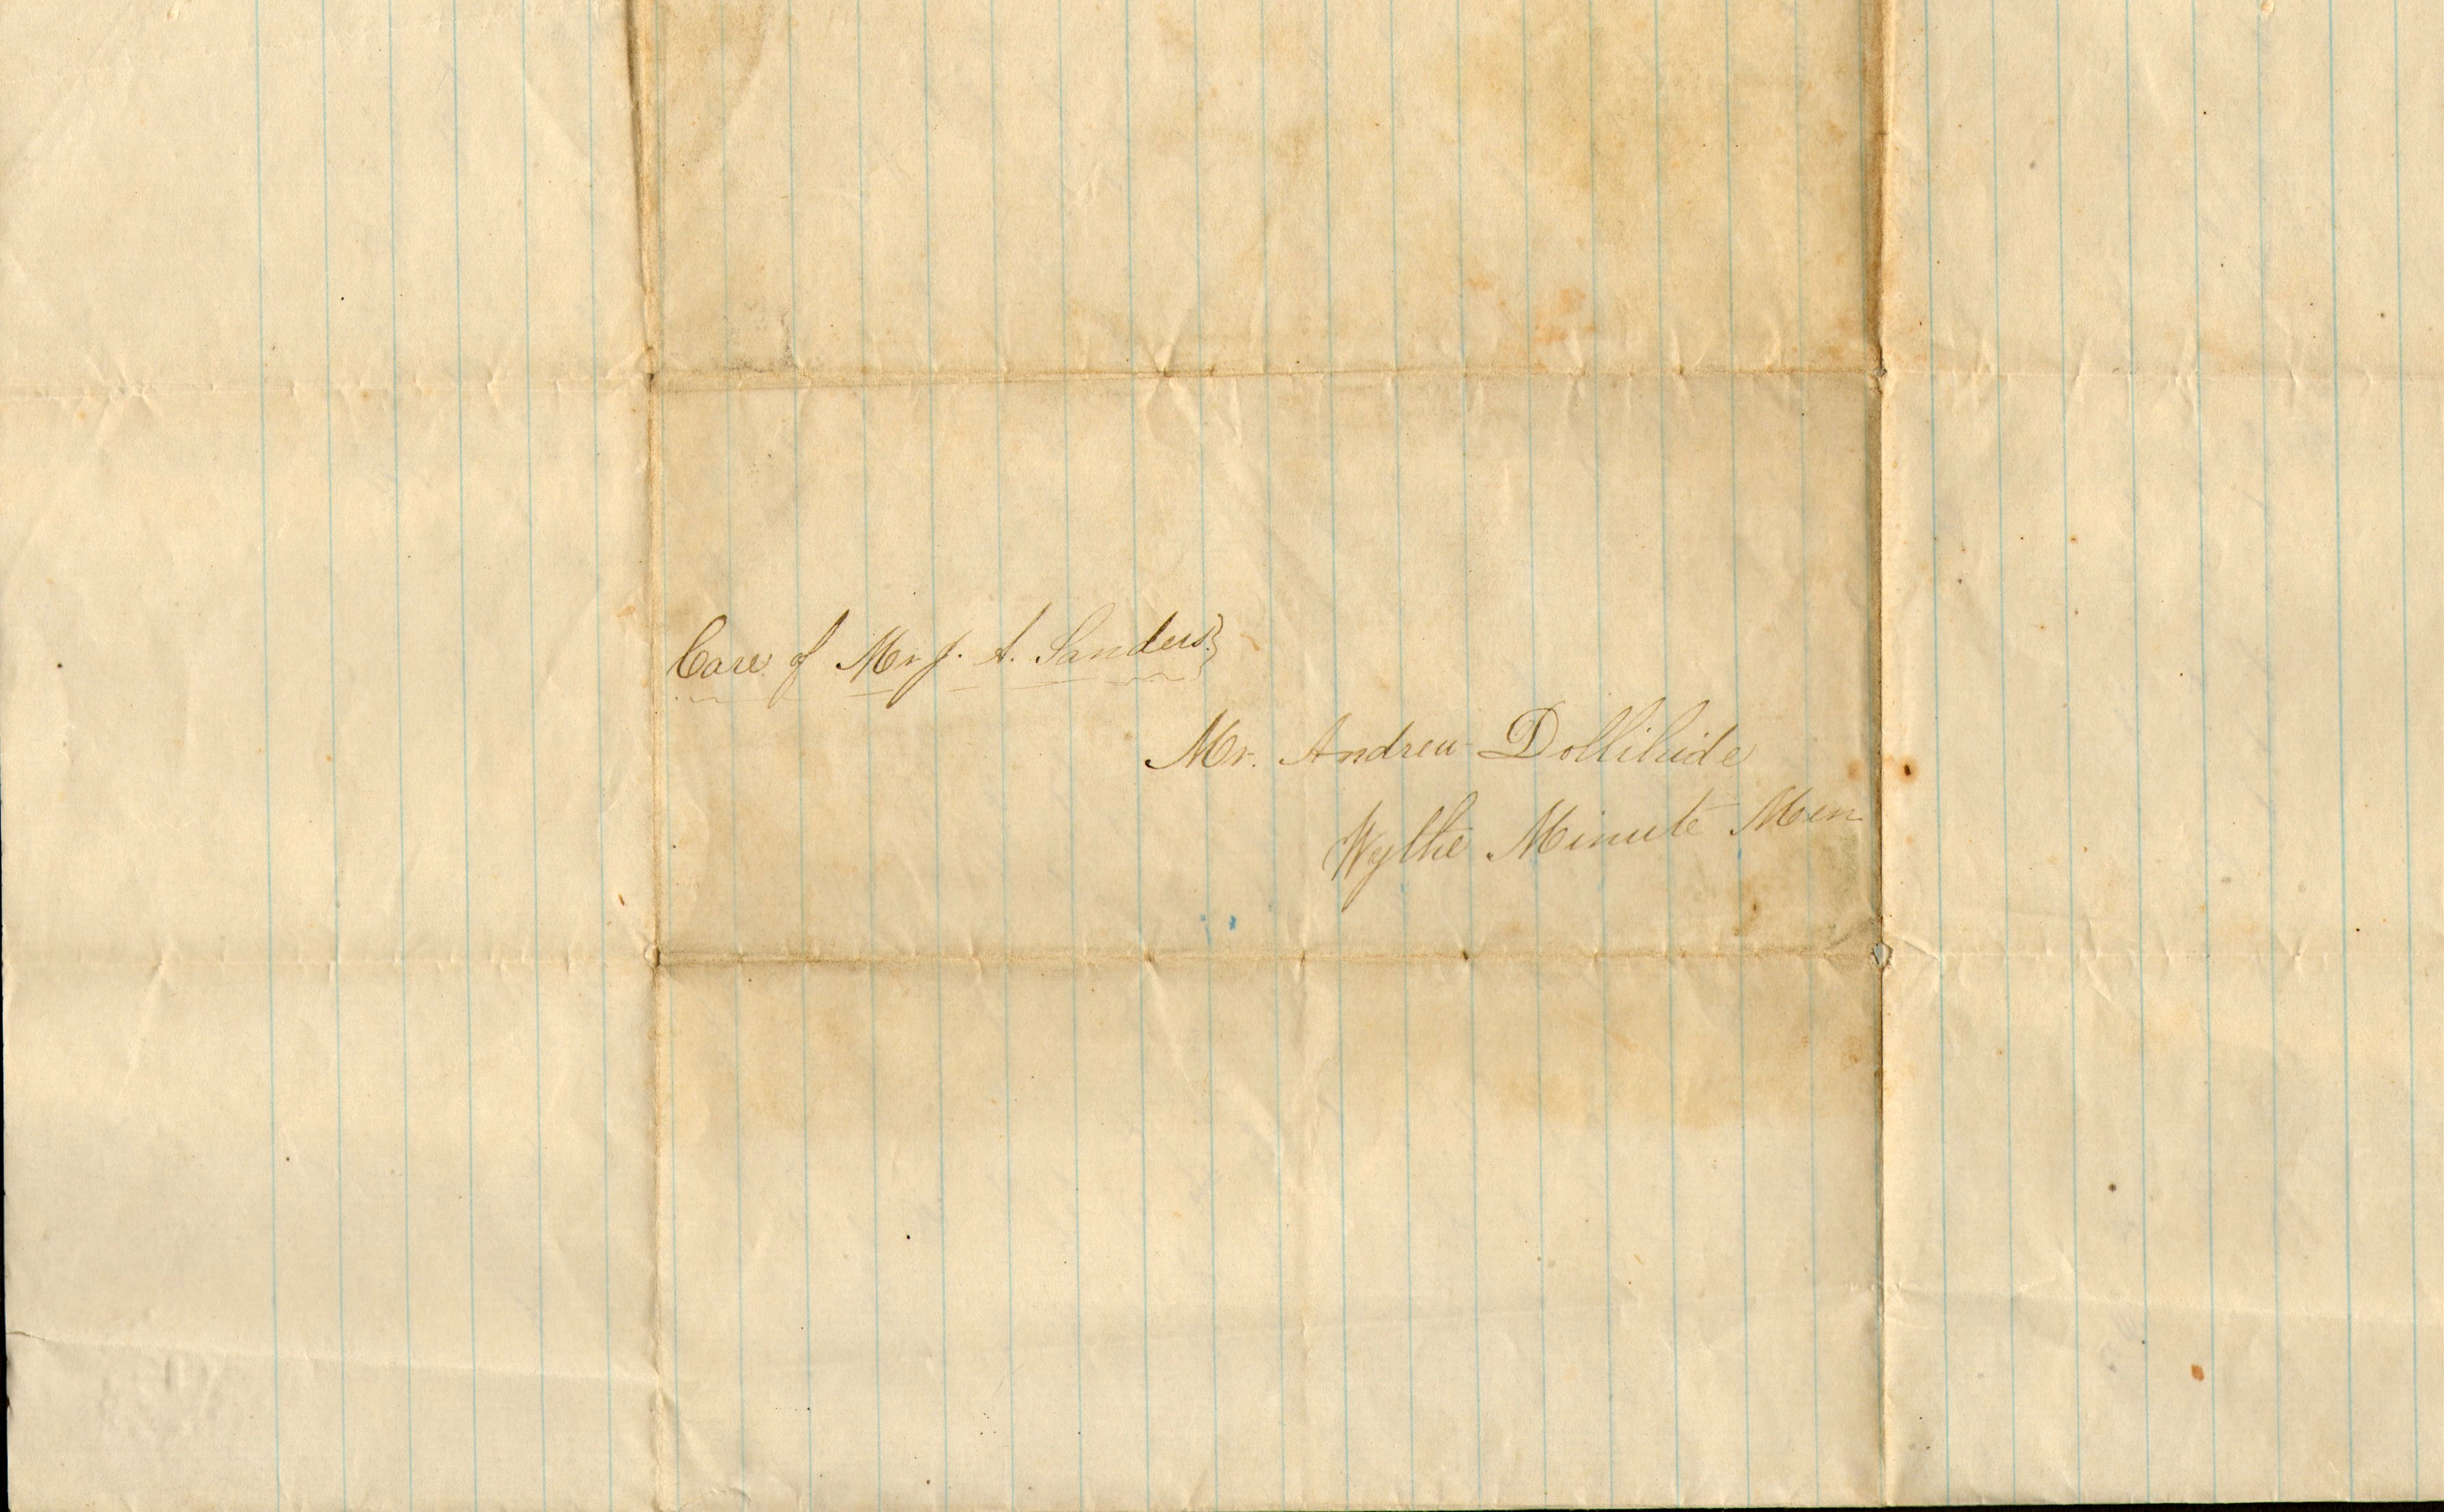 Care of Mr J. A. Sanders.}
Mr. Andrew Dollihide
Wythe Minute Men